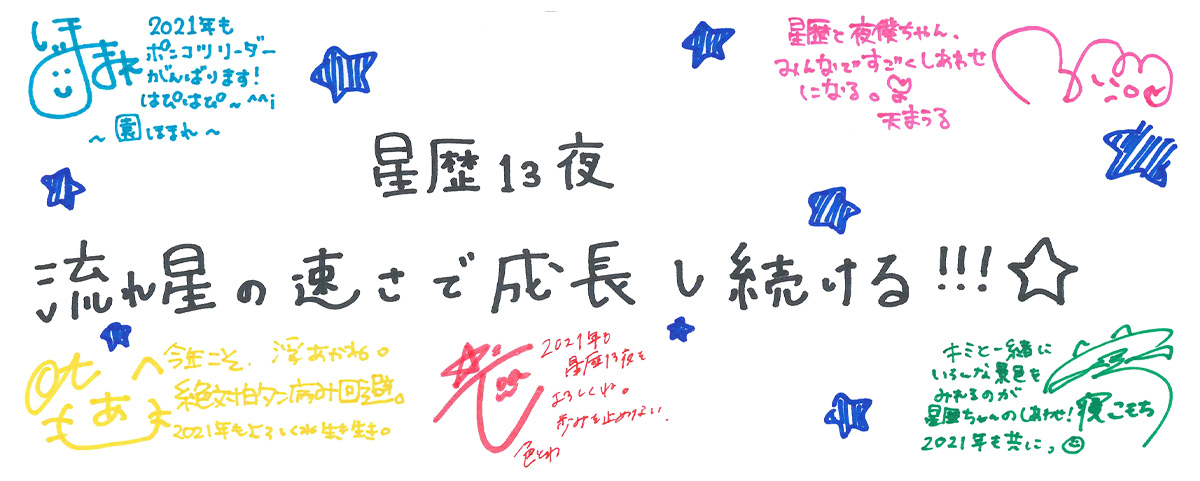 2021年も
ポンコツリーダー
がんばります!
はぴはぴ~^^i
~園ほまれ~
星歴と夜僕ちゃん、
みんなですごくしあわせ
になる。
天まうる
星歴13夜
流れ星の速さで成長し続ける!!!☆
今年こそ、浮あがね。
絶対拍タン病み回避。
2021年もよろしくね生き生き。
2021年も
星歴13夜を
よろしくね。
歩みを止めない!
色とわ
キミと一緒に
いろんな景色を
みれるのが
星歴ちゃんのしあわせ!
寝こもち
2021年も共にっ